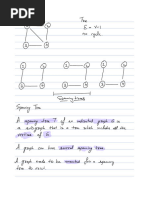 Tree
E = V-1
no cycle
Spanning trees
Spanning Tree
A spanning tree T of an undirected graph G is
a subgraph that is a tree which include all the
vertices of G.
A graph can have several spanning tree.
A graph needs to be connected for a spanning
tree to exist.